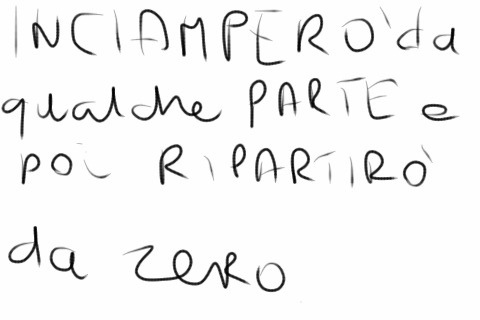 INCIAMPERO' da
qualche PARTE e
poi RIPARTIRO'
da zeRO